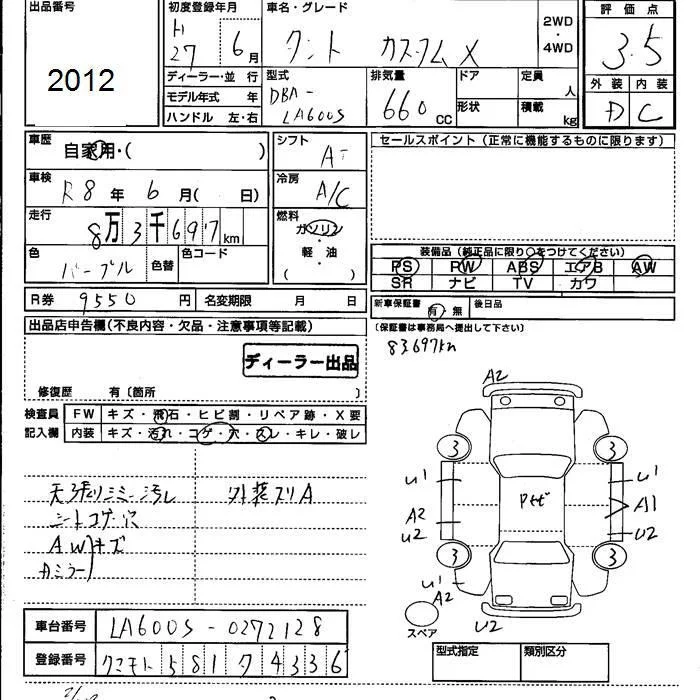 出品番号
2012
初度登録年月
H27 6月
車名・グレード
タント カスタムX
2WD・4WD
評価点
3.5
外装 内装
D C
ディーラー・並 行
モデル年式 年
ハンドル 左・右
型式
DBA-LA600S
排気量
660 CC
ドア
形状
定員 人
積載 kg
車歴
自家用・( )
車検
R8年 6月( 日)
走行
8万3千697km
色
パープル
色替
色コード
シフト
AT
冷房
A/C
燃料
ガソリン
軽・油
( )
セールスポイント (正常に機能するものに限ります)
装備品(純正品に限り○をつけてください)
PS PW ABS エアB AW
SR ナビ TV カワ
R券 9550円 名変期限 月 日
新車保証書 有・無 後日品
(保証書は事務局へ提出して下さい)
83697km
出品店申告欄(不良内容・欠品・注意事項等記載)
ディーラー出品
修復歴 有〔箇所 〕
検査員記入欄
FW キズ・飛石・ヒビ割・リペア跡・X要
内装 キズ・汚れ・コゲ・穴・スレ・キレ・破レ
天張りシミ・汚レ 外装スリA
シートコゲ・穴
AW キズ
カミラー
A2
3 3
U1 U1
A1
A2
U2 U2
3 3
U1
A2
U2
スペア
車台番号 LA600S-0272128
登録番号 クマモト 581 タ 4336
型式指定 類別区分